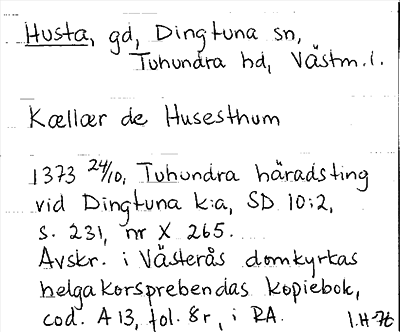 Husta, gd, Dingtuna sn,
Tuhundra hd, Västm.l.
Kællær de Husesthum
1373 24/10, Tuhundra häradsting
vid Dingtuna k:a, SD 10:2,
s. 231, nr X 265.
Avskr. i Västerås domkyrkas
helgakorsprebendas kopiebok,
cod. A 13, fol. 8r, i RA.
I.H-76